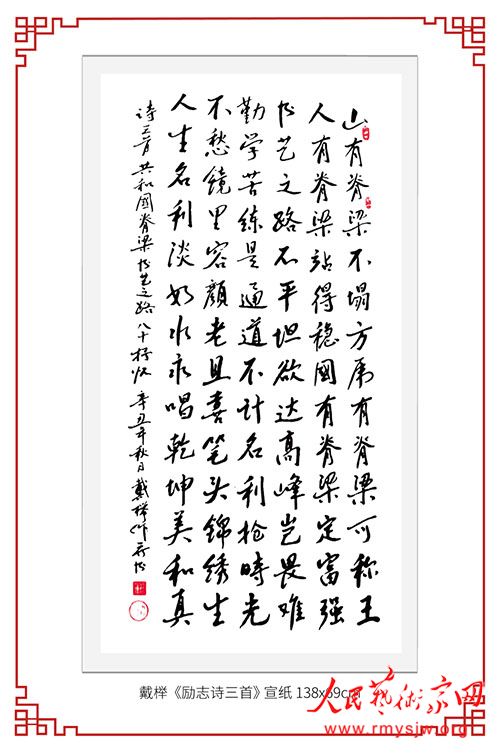 山有脊梁不塌方虎有脊梁可称王
人有脊梁站得稳國有脊梁定富强
书艺之路不平坦欲达高峰岂畏难
勤学苦练是通道不计名利抢時光
不愁镜里容颜老且喜笔头锦绣生
人生名利淡如水永唱乾坤美和真
诗三首共和國脊梁书艺之路八十抒怀辛丑年秋日戴榉作并书
戴榉《励志诗三首》宣纸 138x69cm
人民藝術家网
www.rmysjw.org